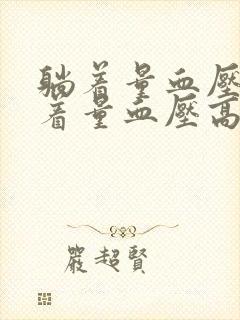 躺着量血壓
着量血壓高
嚴超賢